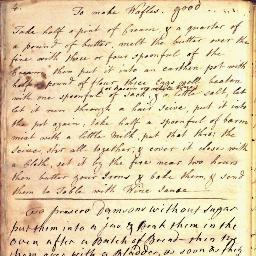 4. To make Wafles. good
Take half a pint of Cream, & a quarter of
a pound of butter, melt the butter over the
fire with three or four spoonfull of the
Cream, then put it into an earthen pot with
half a pound of flour, three Eggs well beaten
with one spoonful of Sack, & a little salt, let
let it run through a hair seive, put it into
the pot again, take half a spoonful of barm
mixt with a little Milk, put that thro; the
seive stir all together, & cover it close with
a Cloth, set it by the fire near two hours
then butter your Irons & bake them, & send
them to Table with Wine Sauce
To preserve Damsons without Sugar
put them into a Jar & Bake them in the
Oven after a Batch of Bread when
them over with a Bladder, as soon as they